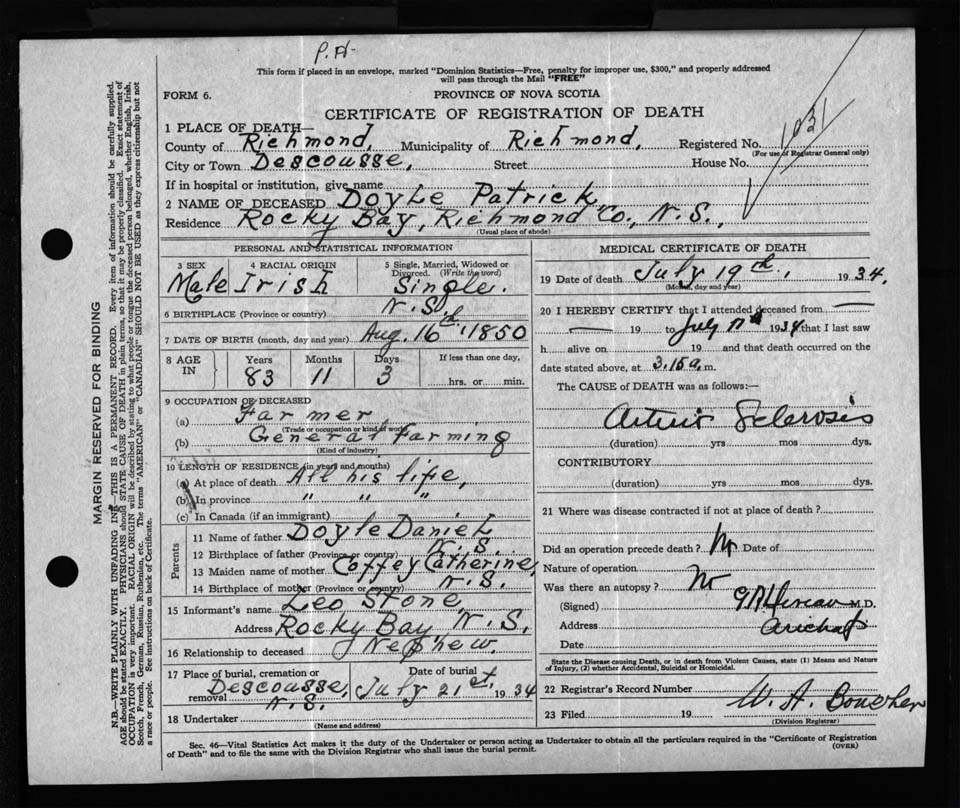 P.H.
This form if placed in an envelope, marked "Dominion Statistics—Free, penalty for improper use, $300," and properly addressed
will pass through the Mail "FREE"
FORM 6.
PROVINCE OF NOVA SCOTIA
CERTIFICATE OF REGISTRATION OF DEATH
1 PLACE OF DEATH—
County of Richmond, Municipality of Richmond, Registered No. 1031
(For use of Registrar General only)
City or Town Descousse, Street House No.
If in hospital or institution, give name
2 NAME OF DECEASED Doyle Patrick
Residence Rocky Bay, Richmond Co., N.S.,
(Usual place of abode)
PERSONAL AND STATISTICAL INFORMATION
3 SEX 4 RACIAL ORIGIN 5 Single, Married, Widowed or
Divorced. (Write the word)
Male Irish Single.
6 BIRTHPLACE (Province or country) N.S.
7 DATE OF BIRTH (month, day and year) Aug. 16th, 1850
8 AGE IN Years Months Days If less than one day,
83 11 3 hrs. or min.
9 OCCUPATION OF DECEASED
(a) Farmer
(Trade or occupation or kind of work)
(b) General farming
(Kind of industry)
10 LENGTH OF RESIDENCE (in years and months)
(a) At place of death All his life,
(b) In province " " "
(c) In Canada (if an immigrant)
Parents
11 Name of father Doyle Daniel
12 Birthplace of father (Province or country) N.S.
13 Maiden name of mother Coffey Catherine,
14 Birthplace of mother (Province or country) N.S.
15 Informant's name Leo Stone,
Address Rocky Bay N.S,
16 Relationship to deceased Nephew.
17 Place of burial, cremation or Date of burial
removal Descousse, N.S. July 21st, 1934
18 Undertaker
(Name and address)
MEDICAL CERTIFICATE OF DEATH
19 Date of death July 19th, 1934.
(Month, day and year)
20 I HEREBY CERTIFY that I attended deceased from
19 to July 1934 that I last saw
h alive on 19 and that death occurred on the
date stated above, at 3.15 a. m.
The CAUSE OF DEATH was as follows:—
Arterio Sclerosis
(duration) yrs mos dys.
CONTRIBUTORY
(duration) yrs. mos. dys.
21 Where was disease contracted if not at place of death?
Did an operation precede death? No Date of
Nature of operation
Was there an autopsy? No
(Signed) M.D.
Address Arichat
Date
State the Disease causing Death, or in death from Violent Causes, state (1) Means and Nature
of Injury, (2) whether Accidental, Suicidal or Homicidal.
22 Registrar's Record Number
23 Filed 19 W. A. Boucher
(Division Registrar)
Sec. 46—Vital Statistics Act makes it the duty of the Undertaker or person acting as Undertaker to obtain all the particulars required in the "Certificate of Registration
of Death" and to file the same with the Division Registrar who shall issue the burial permit. (OVER)
MARGIN RESERVED FOR BINDING
N.B.—WRITE PLAINLY WITH UNFADING INK—THIS IS A PERMANENT RECORD. Every item of information should be carefully supplied.
AGE should be stated EXACTLY. PHYSICIANS should STATE CAUSE OF DEATH in plain terms, so that it may be properly classified. Exact statement of
OCCUPATION is very important. RACIAL ORIGIN will be described by stating to what people or tongue the deceased person belonged, whether English, Irish,
Scotch, French, German, Russian, Ruthenian, etc. The terms "AMERICAN" or "CANADIAN" SHOULD NOT BE USED as they express citizenship but not
a race or people. See instructions on back of Certificate.